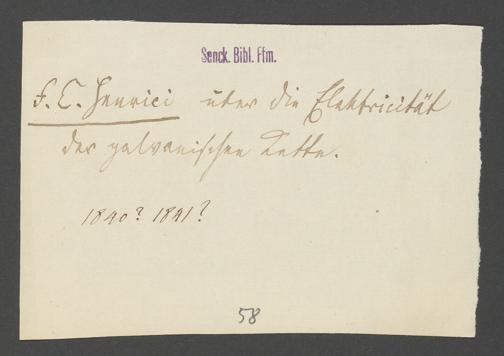 Senck. Bibl. Ffm.
F. C. Henrici über die Elektricität
der galvanischen Kette.
1840? 1841?
58